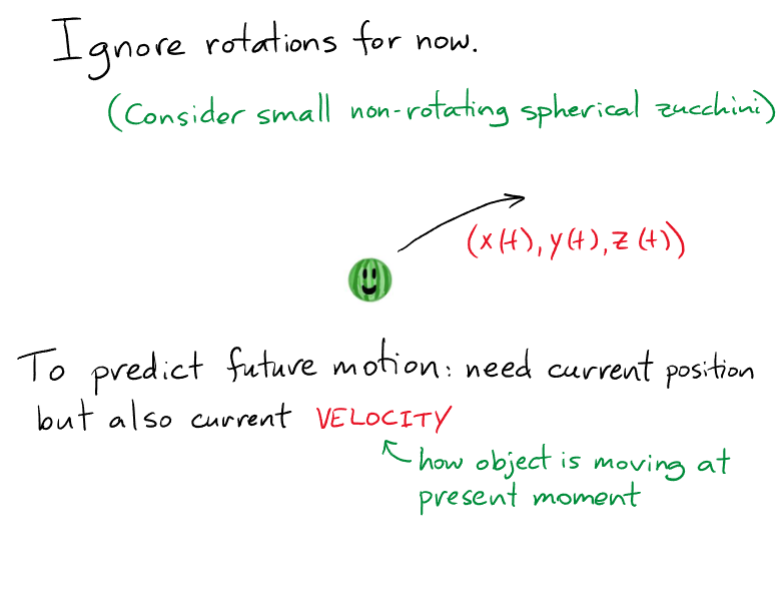 Ignore rotations for now.
(Consider small non-rotating spherical zucchini)
(x(t), y(t), z(t))
To predict future motion: need current position
but also current VELOCITY
how object is moving at
present moment